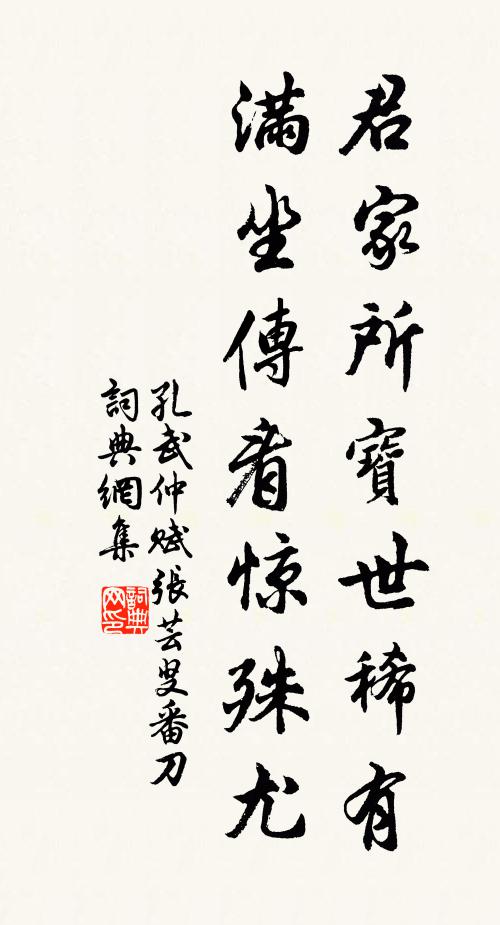 君家所寶世稀有
滿坐傳看惊殊尤
孔武仲賦張芸叟番刀
詞典網集
詞典网印